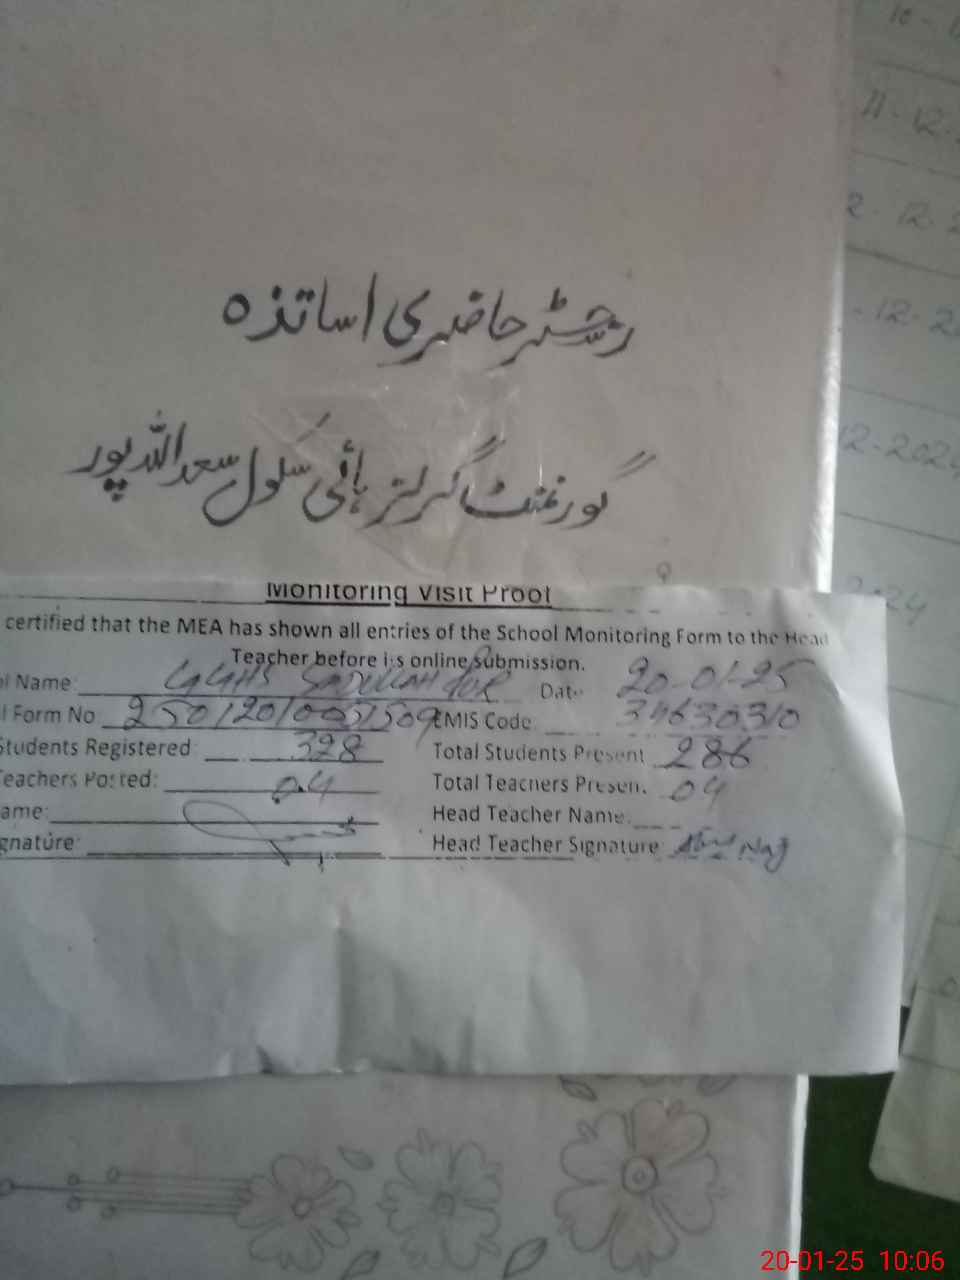 رجسٹر حاضری اساتذہ
گورنمنٹ گرلز ہائی سکول سعداللہ پور
Monitoring Visit Proof
certified that the MEA has shown all entries of the School Monitoring Form to the Head
Teacher before its online submission.
l Name: GGHS SADULLAH PUR Date 20-01-25
l Form No EMIS Code 34630310
Students Registered: 328 Total Students Present 286
Teachers Posted: 04 Total Teachers Present. 04
ame: Head Teacher Name:
gnature: Head Teacher Signature
11-12-
12-2024
20-01-25 10:06